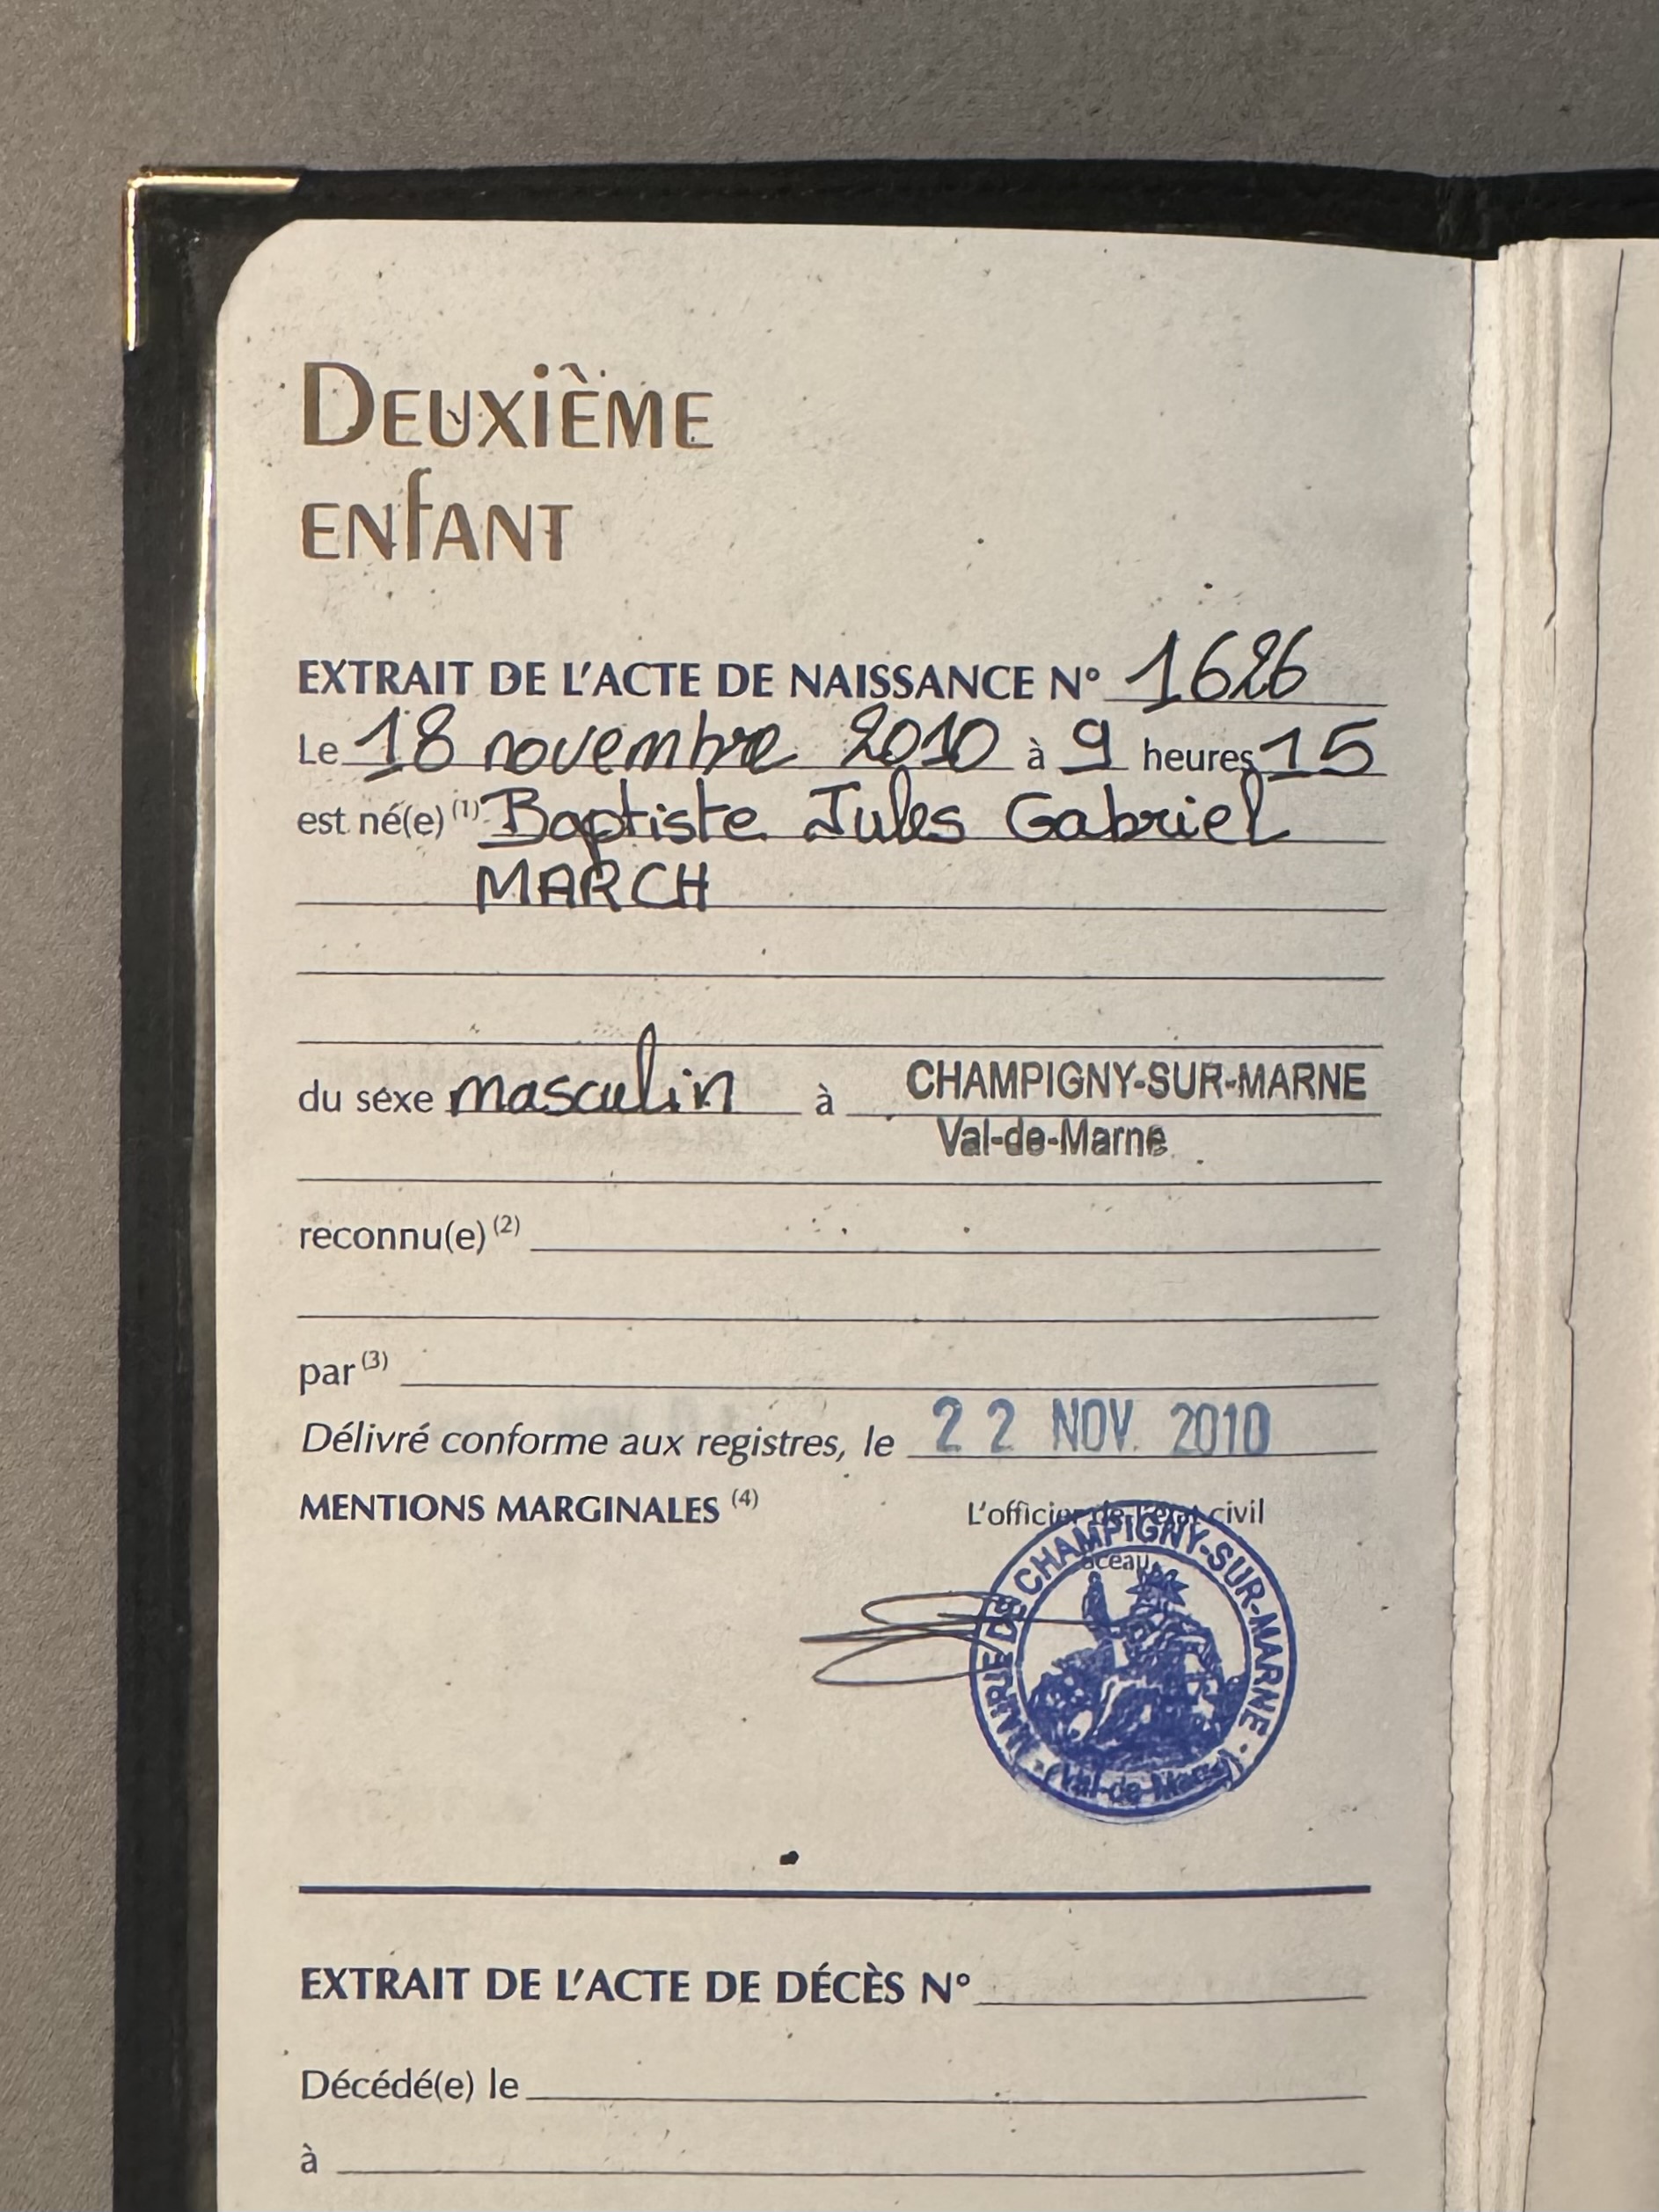 DEUXIÈME
ENFANT
EXTRAIT DE L'ACTE DE NAISSANCE N° 1626
Le 18 novembre 2010 à 9 heures 15
est né(e) (1) Baptiste Jules Gabriel
MARCH
du sexe masculin à CHAMPIGNY-SUR-MARNE
Val-de-Marne
reconnu(e) (2)
par (3)
Délivré conforme aux registres, le 22 NOV. 2010
MENTIONS MARGINALES (4) L'officier de l'état civil
Sceau
MAIRIE DE CHAMPIGNY-SUR-MARNE
(Val-de-Marne)
EXTRAIT DE L'ACTE DE DÉCÈS N°
Décédé(e) le
à